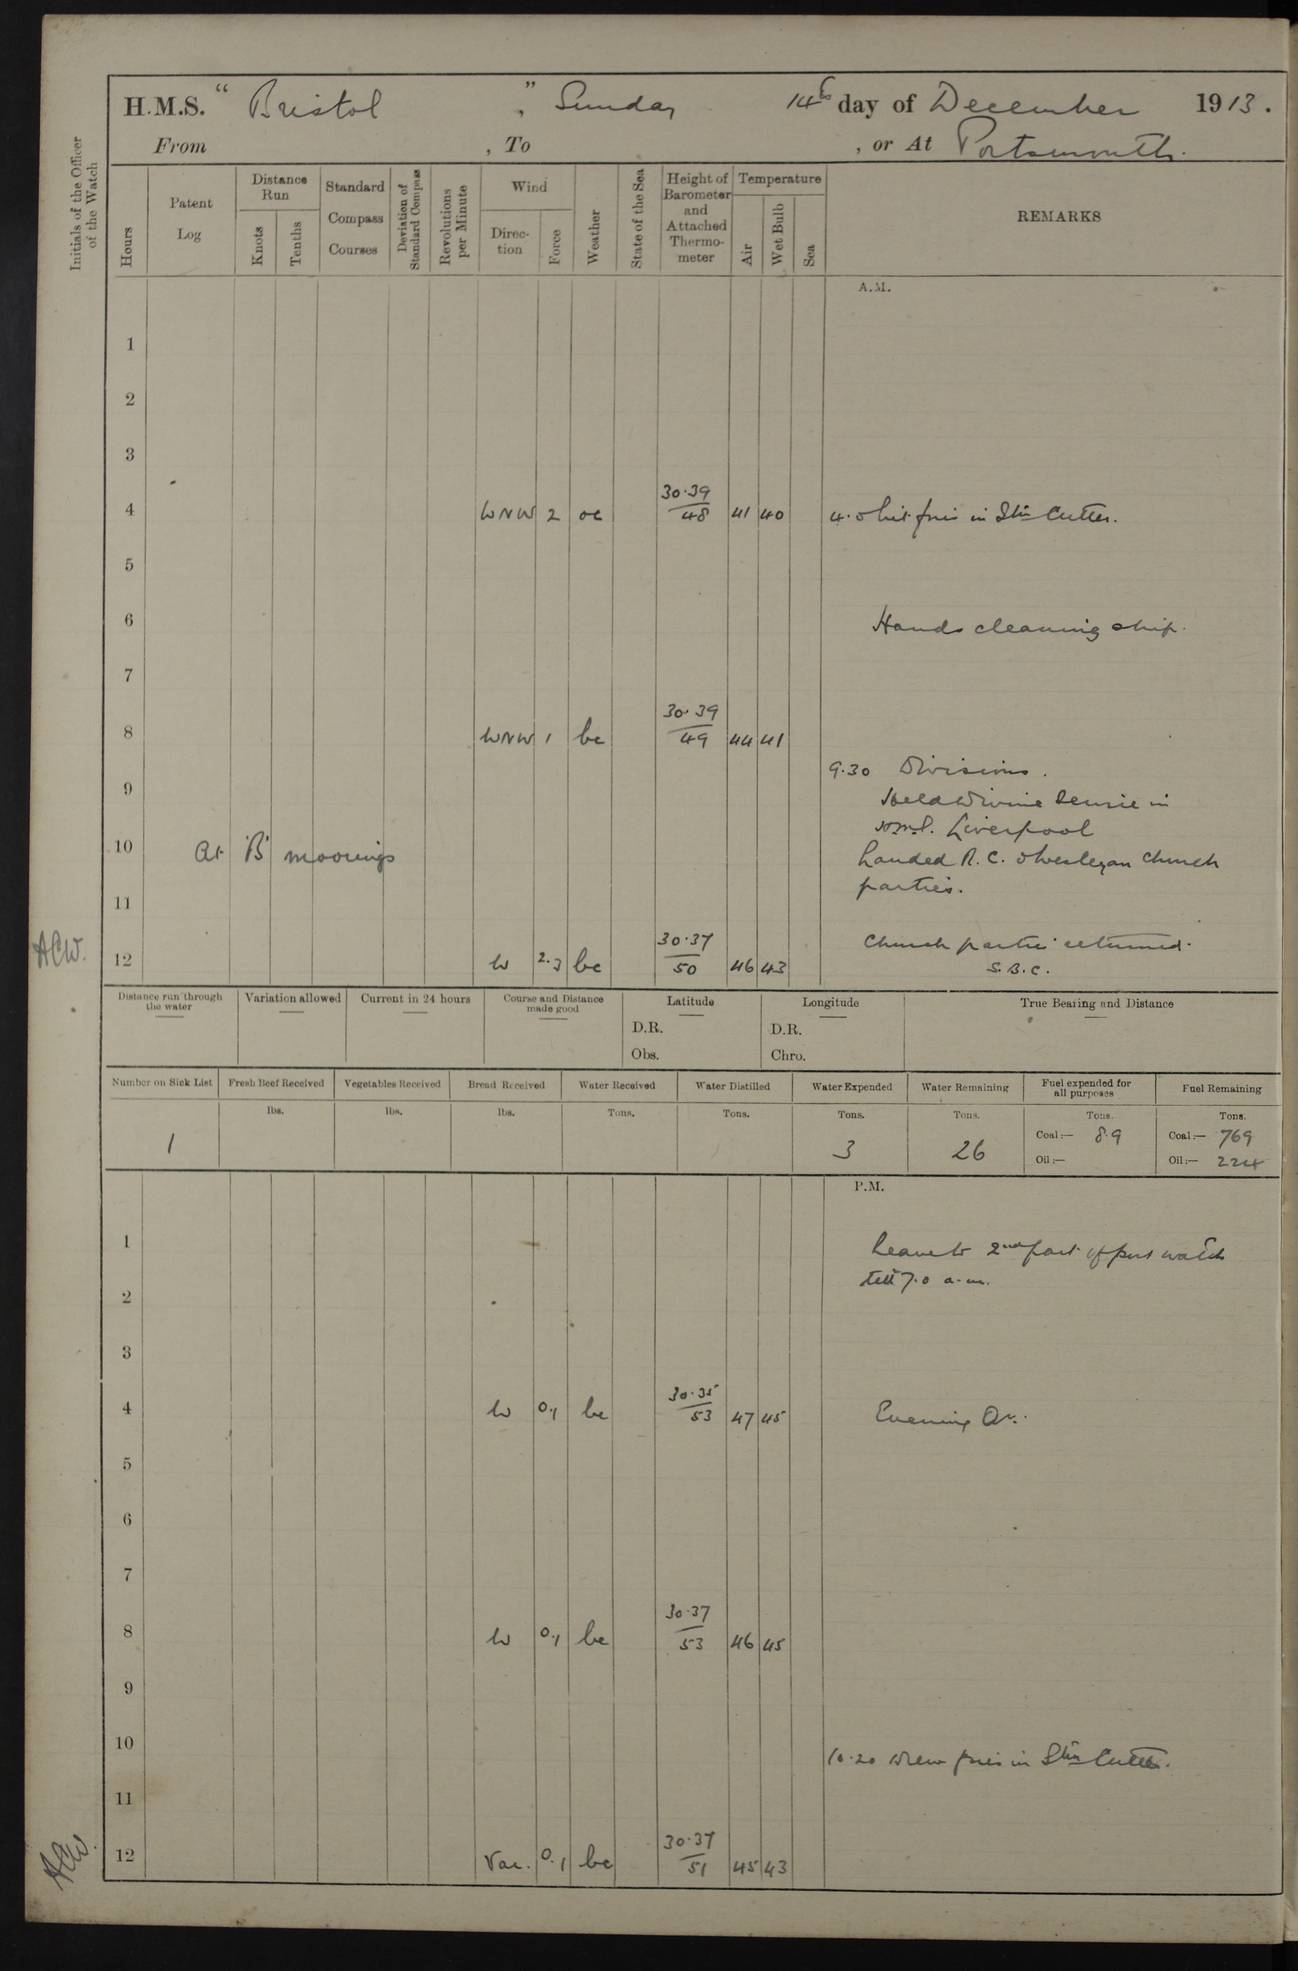 H.M.S. " Bristol ", Sunday 14th day of December 1913.
From , To , or At Portsmouth.
Initials of the Officer of the Watch
Hours
Patent Log
Distance Run
Knots
Tenths
Standard Compass Courses
Deviation of Standard Compass
Revolutions per Minute
Wind
Direction
Force
Weather
State of the Sea
Height of Barometer and Attached Thermometer
Temperature
Air
Wet Bulb
Sea
REMARKS
A.M.
1
2
3
4 WNW 2 oc 30.39/48 41 40 4.0 Lit fires in Stm Cutter.
5
6 Hands cleaning ship.
7
8 WNW 1 bc 30.39/49 44 41
9.30 Divisions.
9 Held Divine Service in
H.M.S. Liverpool
10 At 'B' moorings Landed R.C. & Wesleyan Church
parties.
11
Church parties returned.
ACW. 12 W 2.3 bc 30.37/50 46 43 S.B.C.
Distance run through the water
Variation allowed
Current in 24 hours
Course and Distance made good
Latitude
D.R.
Obs.
Longitude
D.R.
Chro.
True Bearing and Distance
Number on Sick List Fresh Beef Received Vegetables Received Bread Received Water Received Water Distilled Water Expended Water Remaining Fuel expended for all purposes Fuel Remaining
lbs. lbs. lbs. Tons. Tons. Tons. Tons. Tons. Tons.
1 3 26 Coal:— 8.9 Coal:— 769
Oil:— Oil:— 224
P.M.
1 Leave to 2nd part of port watch
till 7.0 a.m.
2
3
4 W 0.1 bc 30.35/53 47 45 Evening Qrs.
5
6
7
8 W 0.1 bc 30.37/53 46 45
9
10 10.20 Drew fires in Stm Cutter.
11
ACW. 12 Var. 0.1 bc 30.37/51 45 43